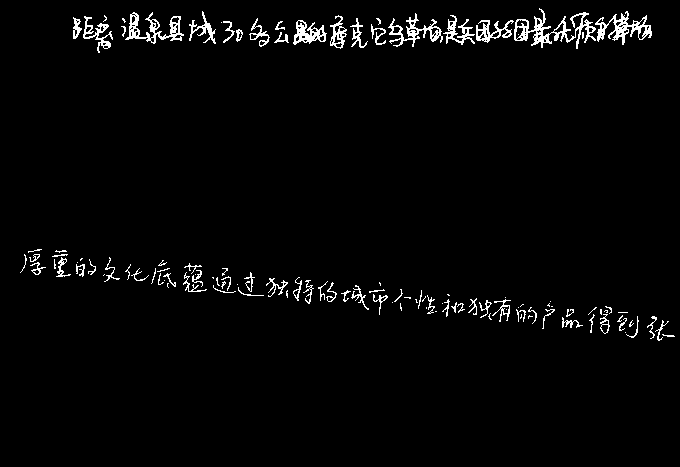 距离温泉县城30多公里的摩克它乌草场是兵团88团最优质的草场
厚重的文化底蕴通过独特的城市个性和独有的产品得到张